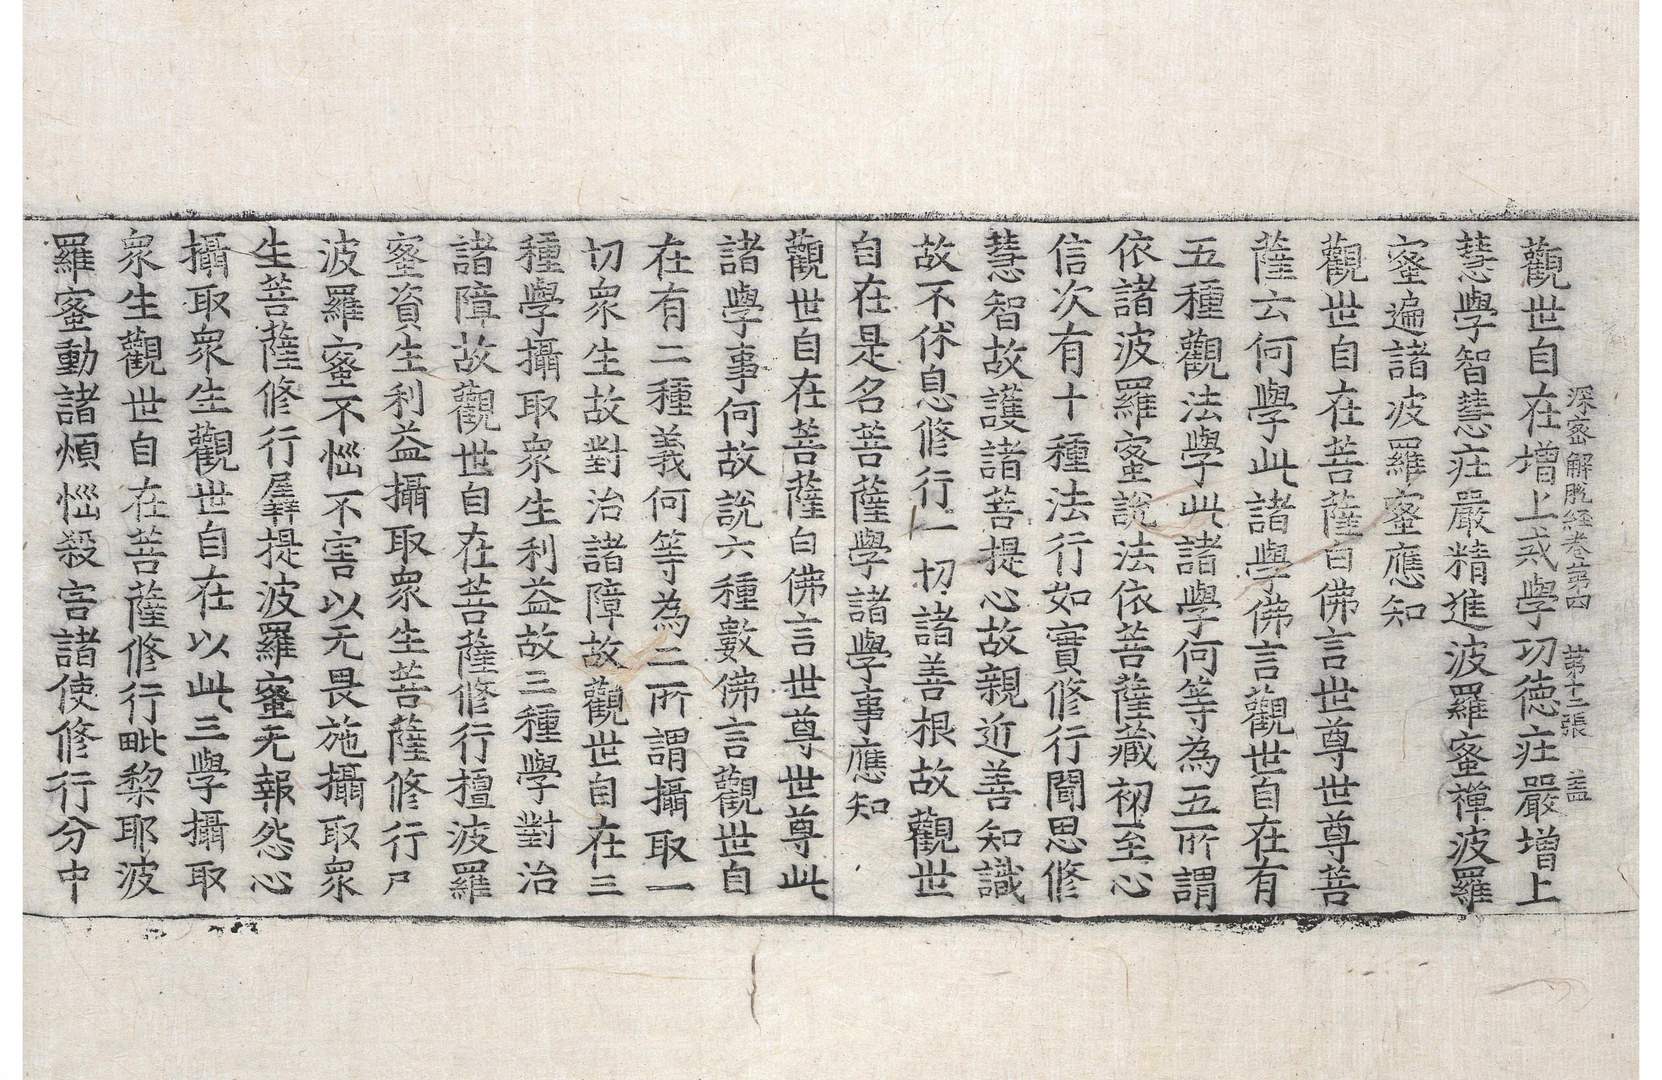 深密解脫経卷第四 第十二張 盖
觀世自在增上戒學功德庄嚴增上
慧學智慧庄嚴精進波羅蜜禪波羅
蜜遍諸波羅蜜應知
觀世自在菩薩白佛言世尊世尊菩
薩云何學此諸學佛言觀世自在有
五種觀法學此諸學何等為五所謂
依諸波羅蜜說法依菩薩藏初至心
信次有十種法行如實修行聞思修
慧智故護諸菩提心故親近善知識
故不休息修行一切諸善根故觀世
自在是名菩薩學諸學事應知
觀世自在菩薩白佛言世尊世尊此
諸學事何故說六種數佛言觀世自
在有二種義何等為二所謂攝取一
切眾生故對治諸障故觀世自在三
種學攝取眾生利益故三種學對治
諸障故觀世自在菩薩修行檀波羅
蜜資生利益攝取眾生菩薩修行尸
波羅蜜不惱不害以无畏施攝取眾
生菩薩修行羼提波羅蜜无報怨心
攝取眾生觀世自在以此三學攝取
眾生觀世自在菩薩修行毗黎耶波
羅蜜動諸煩惱殺害諸使修行分中